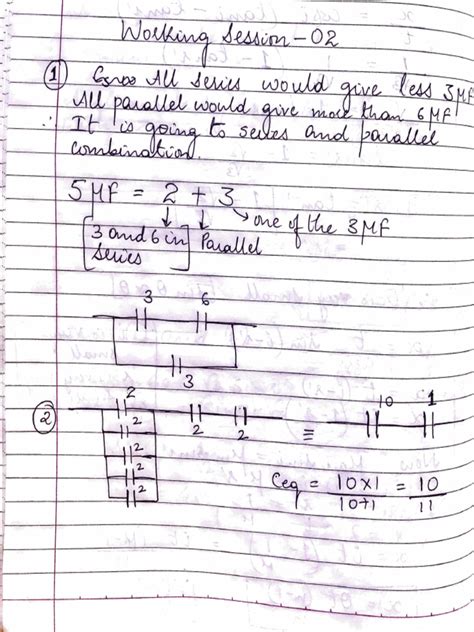 Working Session - 02
① All series would give less 3μF
All parallel would give more than 6μF
∴ It is going to series and parallel
combination.
5μF = 2 + 3
one of the 3μF
3 and 6 in Parallel
series
3 6
3
② 2
2 2 2
2
2
2
≡
10 1
Ceq = 10×1 = 10
10+1 11